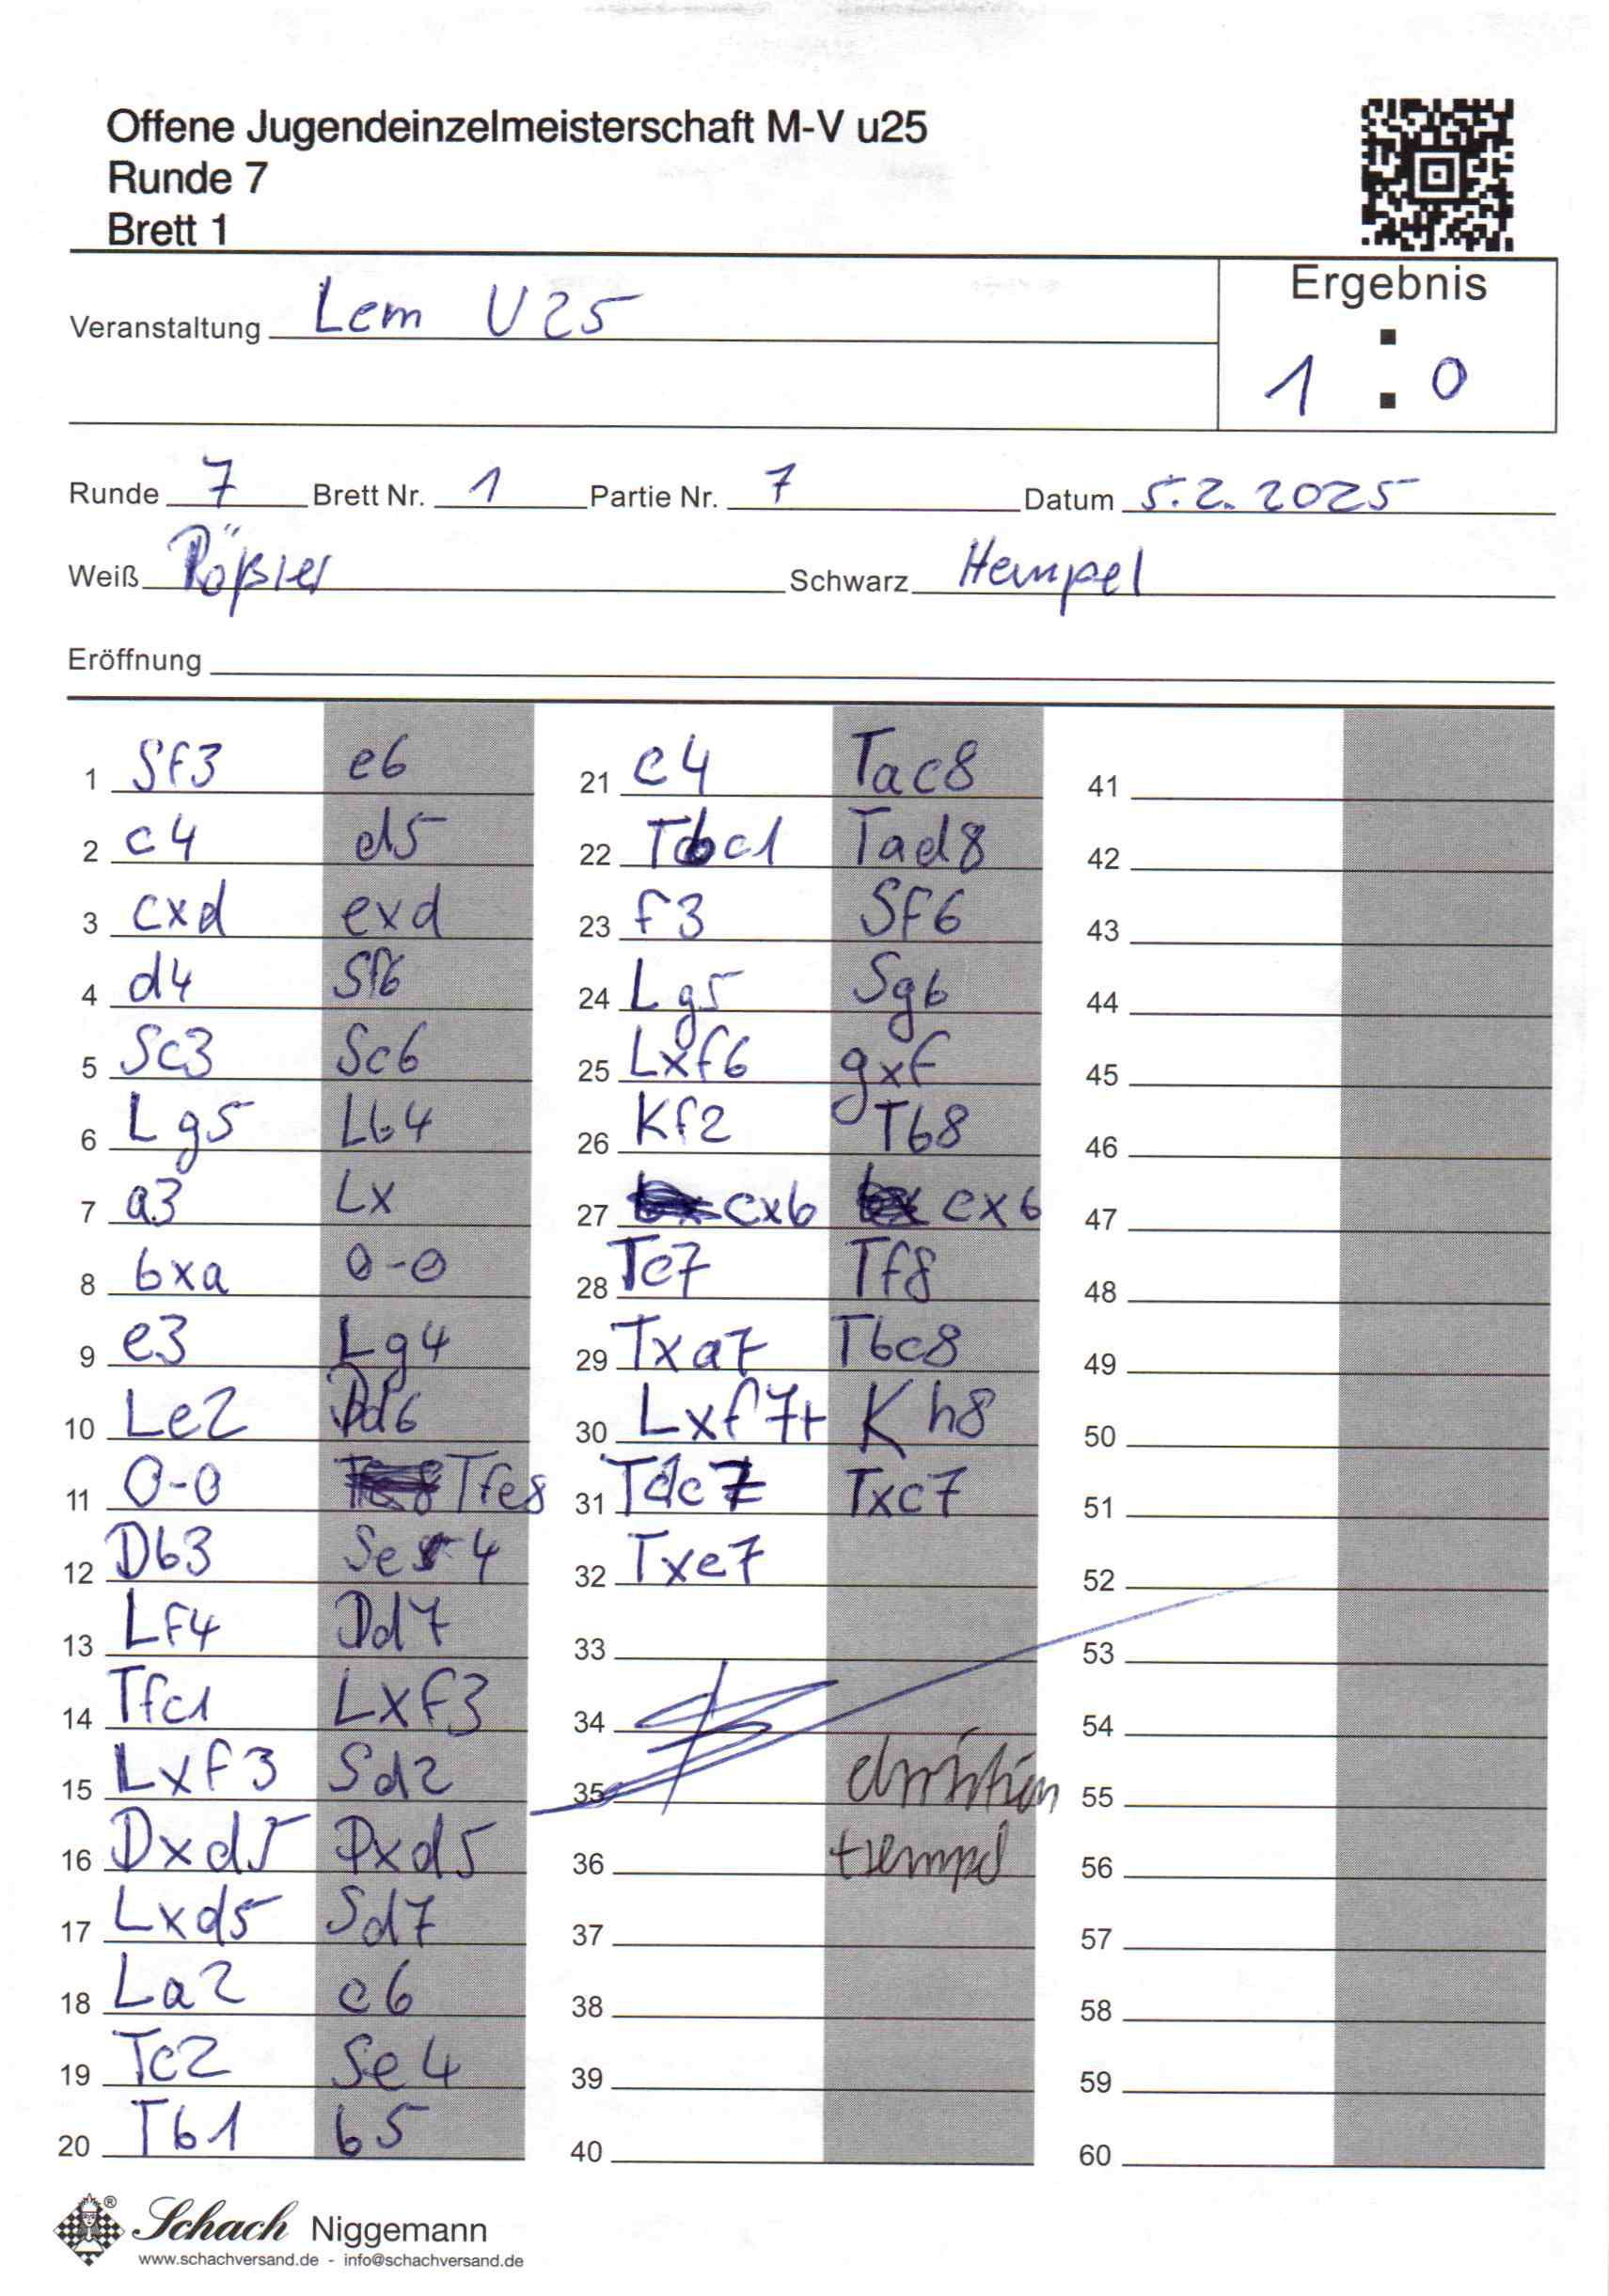 Offene Jugendeinzelmeisterschaft M-V u25
Runde 7
Brett 1
Ergebnis
Veranstaltung Lem U25
1 : 0
Runde 7 Brett Nr. 1 Partie Nr. 7 Datum 5.2.2025
Weiß Rößler Schwarz Hempel
Eröffnung
1 Sf3 e6
2 c4 d5
3 cxd exd
4 d4 Sf6
5 Sc3 Sc6
6 Lg5 Lb4
7 a3 Lx
8 bxa 0-0
9 e3 Lg4
10 Le2 Dd6
11 0-0 Tfe8
12 Db3 Se4
13 Lf4 Dd7
14 Tfc1 Lxf3
15 Lxf3 Sd2
16 Dxd5 Dxd5
17 Lxd5 Sd7
18 La2 c6
19 Tc2 Se4
20 Tb1 b5
21 c4 Tac8
22 Tbc1 Tad8
23 f3 Sf6
24 Lg5 Sg6
25 Lxf6 gxf
26 Kf2 Tb8
27 cxb cxb
28 Tc7 Tf8
29 Txa7 Tbc8
30 Lxf7+ Kh8
31 Tdc7 Txc7
32 Txe7
33
34
35 christian
36 Hempel
37
38
39
40
41
42
43
44
45
46
47
48
49
50
51
52
53
54
55
56
57
58
59
60
Schach Niggemann
www.schachversand.de - info@schachversand.de